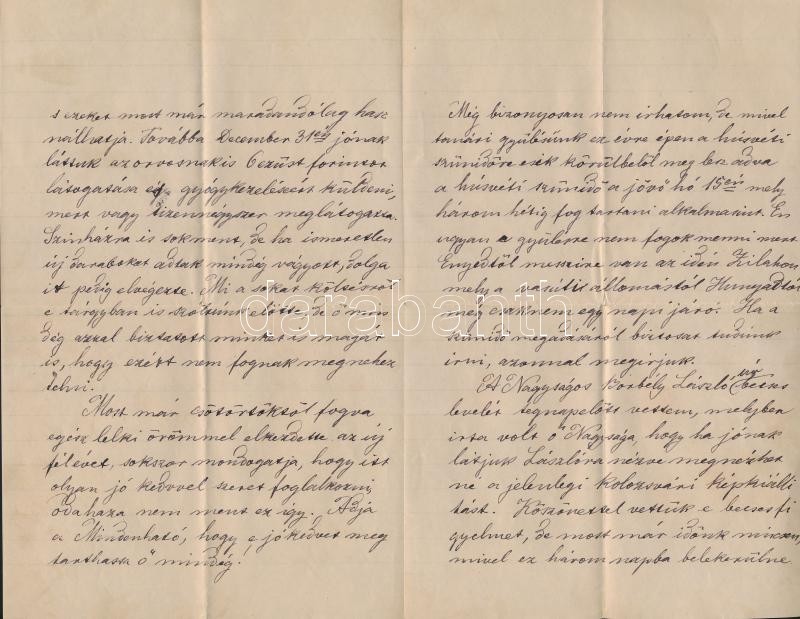 s ezeket most már maradandólag hasz
nálhatja. Továbba December 31én jónak
láttuk az orvosnak is 6 ezüst forintot
látogatása és gyógykezeléseért küldeni,
mert vagy tizennégyszer meglátogatta.
Szinházra is sokment, de ha ismeretlen
új darabokat adtak mindég vágyott, dolga
it pedig elvegezte. Mi a sokat
e tárgyban is szóltunk előtte, de ő min
dég azzal biztatott minket is magát
is, hogy ezért nem fognak megnehez
telni.
Most már csötörtöktöl fogva
egész lelki örömmel elkezdette az új
félévet, sokszor mondogatja, hogy itt
olyan jó kedvvel szeret foglalkozni,
odahaza nem ment ez így. Adja
a Mindenható, hogy e jó kedvet meg
tarthassa ő mindég!
Még bizonyosan nem irhatom, de mivel
tanári gyülésünk ez évre épen a húsvéti
szünidőre esik körülbelől meg lesz adva
a húsvéti szünidő a jövő hó 15én mely
három hétig fog tartani alkalmasint. Én
ugyan a gyülésre nem fogok menni mert
Enyedtől messzire van az idén Zilahon
mely a vasúti állomástól Hunyadtól
még csaknem egy napi járó. Ha a
szünidő megadásáról biztosat tudunk
irni, azonnal megirjuk.
A Nagyságos Borbély László úr becses
levelét tegnapelőtt vettem, melyben
irta volt ő Nagysága, hogy ha jónak
látjuk Lászlóra nézve megnézhet
né a jelenlegi kolozsvári képkiálli
tást. Köszönettel vettük e becses fi
gyelmet, de most már időnk nincsen,
mivel ez három napba belekerülne
darabanth.com